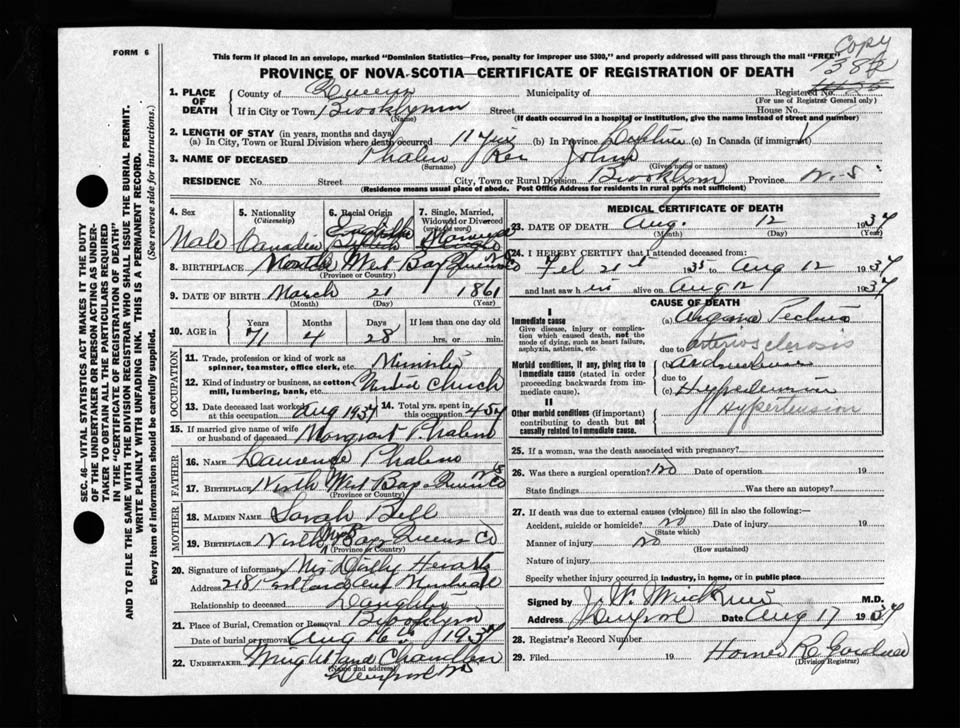 FORM 6
This form if placed in an envelope, marked "Dominion Statistics—Free, penalty for improper use $300," and properly addressed will pass through the mail "FREE"
Copy
PROVINCE OF NOVA SCOTIA—CERTIFICATE OF REGISTRATION OF DEATH
1. PLACE OF DEATH County of Queens Municipality of Registered No.
(For use of Registrar General only)
If in City or Town Brooklyn Street House No.
(Name) (If death occurred in a hospital or institution, give the name instead of street and number)
2. LENGTH OF STAY (in years, months and days)
(a) In City, Town or Rural Division where death occurred 11 (b) In Province (c) In Canada (if immigrant)
3. NAME OF DECEASED Phalen Rev John
(Surname) (Given name or names)
RESIDENCE No. Street City, Town or Rural Division Brooklyn Province N.S.
(Residence means usual place of abode. Post Office Address for residents in rural parts not sufficient)
4. Sex Male
5. Nationality (Citizenship) Canadian
6. Racial Origin
7. Single, Married, Widowed or Divorced (write the word)
8. BIRTHPLACE North West Bay Queens Co
(Province or Country)
9. DATE OF BIRTH March 21 1861
(Month) (Day) (Year)
10. AGE in Years Months Days If less than one day old
71 4 28 hrs. or min.
OCCUPATION
11. Trade, profession or kind of work as spinner, teamster, office clerk, etc. Minister
12. Kind of industry or business, as cotton mill, lumbering, bank, etc. United Church
13. Date deceased last worked at this occupation Aug 1934 14. Total yrs. spent in this occupation 45
15. If married give name of wife or husband of deceased Margaret Phalen
FATHER
16. NAME Phalen
17. BIRTHPLACE North West Bay Queens Co
(Province or Country)
MOTHER
18. MAIDEN NAME Sarah Bell
19. BIRTHPLACE North West Bay Queens Co
(Province or Country)
20. Signature of informant Mrs
Address 218
Relationship to deceased Daughter
21. Place of Burial, Cremation or Removal Brooklyn
Date of burial or removal Aug 16th 1934
22. UNDERTAKER Wright and Chandler
(Name and address)
MEDICAL CERTIFICATE OF DEATH
23. DATE OF DEATH Aug. 12 1934
(Month) (Day) (Year)
24. I HEREBY CERTIFY that I attended deceased from:
Feb 21st to Aug 12 1934
and last saw h im alive on Aug 12 1934
CAUSE OF DEATH
I
Immediate cause (a) Angina Pectoris
Give disease, injury or complication which caused death, not the mode of dying, such as heart failure, asphyxia, asthenia, etc.
due to arteriosclerosis
Morbid conditions, if any, giving rise to immediate cause (stated in order proceeding backwards from immediate cause). (b)
due to
(c)
II
Other morbid conditions (if important) contributing to death but not causally related to immediate cause.
Hypertension
25. If a woman, was the death associated with pregnancy?
26. Was there a surgical operation? No Date of operation 19
State findings Was there an autopsy?
27. If death was due to external causes (violence) fill in also the following:—
Accident, suicide or homicide? no Date of injury 19
(State which)
Manner of injury No
(How sustained)
Nature of injury
Specify whether injury occurred in industry, in home, or in public place
Signed by M.D.
Address Date Aug 17 1934
28. Registrar's Record Number
29. Filed 19 Homer R.
(Division Registrar)
SEC. 46—VITAL STATISTICS ACT MAKES IT THE DUTY
OF THE UNDERTAKER OR PERSON ACTING AS UNDER-
TAKER TO OBTAIN ALL THE PARTICULARS REQUIRED
IN THE "CERTIFICATE OF REGISTRATION OF DEATH"
AND TO FILE THE SAME WITH THE DIVISION REGISTRAR WHO SHALL ISSUE THE BURIAL PERMIT.
WRITE PLAINLY WITH UNFADING INK. THIS IS A PERMANENT RECORD.
Every item of information should be carefully supplied. (See reverse side for instructions.)